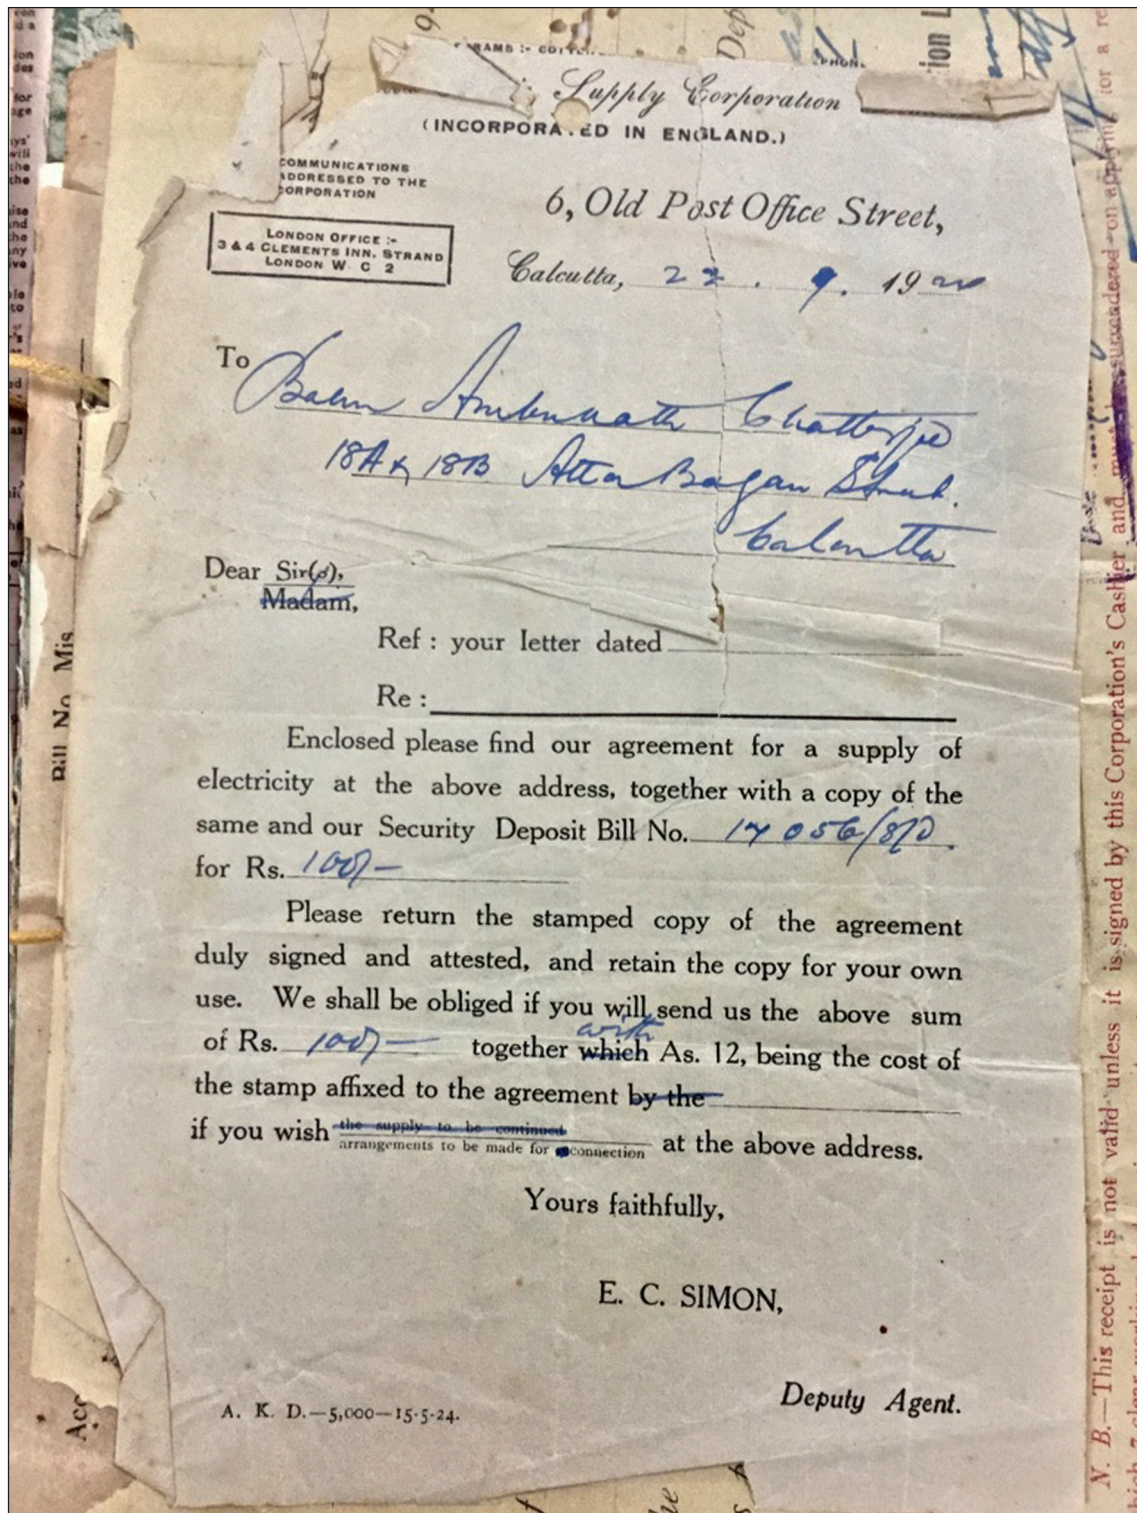 Supply Corporation
(INCORPORATED IN ENGLAND.)
COMMUNICATIONS
ADDRESSED TO THE
CORPORATION
6, Old Post Office Street,
LONDON OFFICE :-
3 & 4 CLEMENTS INN. STRAND
LONDON W C 2
Calcutta, 22 . 9. 19
To
Babu Chatterjee
18A & 18B Bagan
Calcutta
Dear Sir(s),
Madam,
Ref : your letter dated
Re :
Enclosed please find our agreement for a supply of
electricity at the above address, together with a copy of the
same and our Security Deposit Bill No.
for Rs. 100/-
Please return the stamped copy of the agreement
duly signed and attested, and retain the copy for your own
use. We shall be obliged if you will send us the above sum
with
of Rs. 100/- together which As. 12, being the cost of
the stamp affixed to the agreement by the
if you wish the supply to be continued
arrangements to be made for connection at the above address.
Yours faithfully,
E. C. SIMON,
Deputy Agent.
A. K. D.—5,000—15-5-24.
Bill No. Mis
Acc
N. B.—This receipt is not valid unless it is signed by this Corporation's Cashier and must surrendered on applying for a re